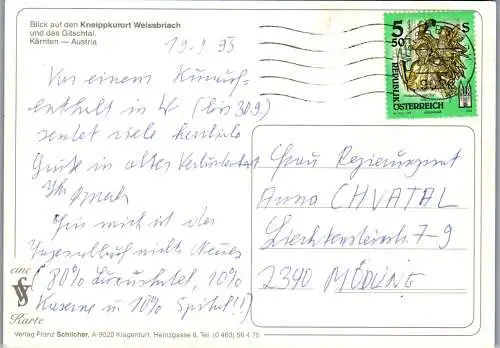 Blick auf den Kneippkurort Weissbriach
und das Gitschtal.
Kärnten — Austria
19.9.93
Von einem
in W (bis 30.9.)
sendet viele herzliche
Grüße in alter Verbundenheit
Ihr
Für mich ist der
nichts Neues
(80% Luxushotel, 10%
Kaserne u. 10% Spital!!)
eine
Karte
Verlag Franz Schilcher, A-9020 Klagenfurt, Heinzgasse 6, Tel. (0 463) 56 4 75
5 50 S
REPUBLIK ÖSTERREICH
Frau Regierungsrat
Anna CHVATAL
Liechtensteinstr. 7-9
2340 MÖDLING